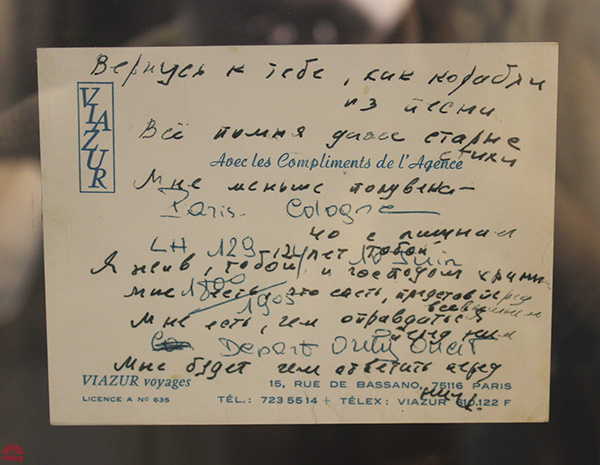 Вернусь к тебе, как корабли
из песни
VIAZUR
Всё помня даже старые
стихи
Avec les Compliments de l'Agence
Мне меньше полувека —
Paris. Cologne
но с лишним
LH 129 12 лет тобой
Я жив, тобой и господом храним
мне 1800 есть, что спеть, представ перед
1905 всевышним
Мне есть, чем оправдаться
перед ним
Depart Ouest
Мне будет чем ответить перед
ним.
VIAZUR voyages 15, RUE DE BASSANO, 75116 PARIS
LICENCE A N° 635 TÉL.: 723 55 14 + TÉLEX: VIAZUR 610.122 F